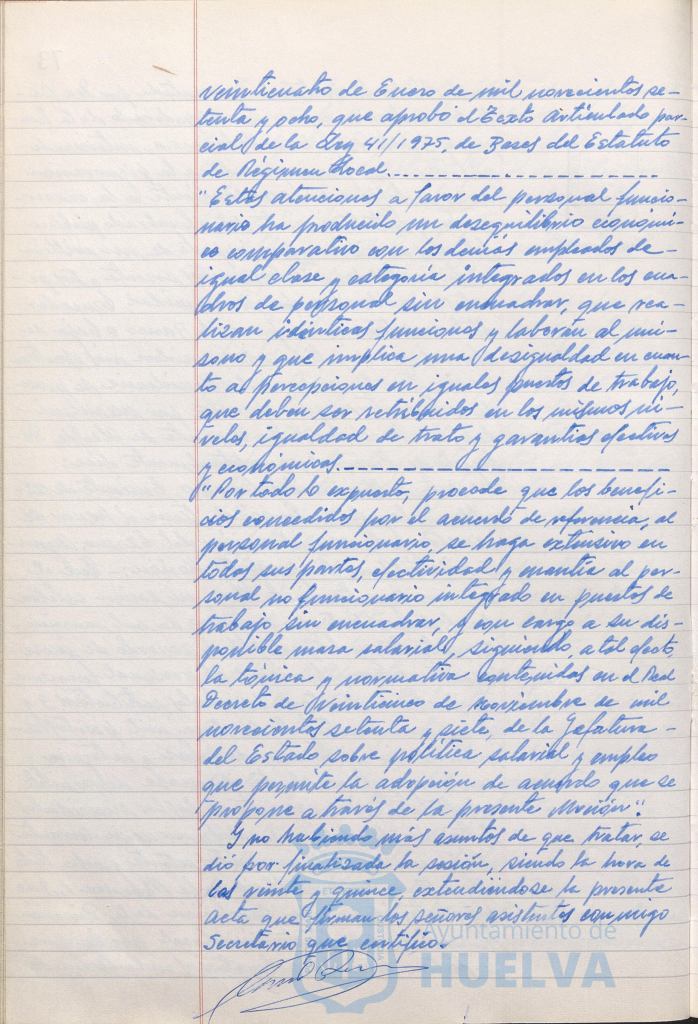 veinticuatro de Enero de mil novecientos se-
tenta y ocho, que aprobó el Texto Articulado par-
cial de la Ley 41/1975, de Bases del Estatuto
de Régimen Local.
"Estas atenciones a favor del personal funcio-
nario ha producido un desequilibrio económi-
co comparativo con los demás empleados de
igual clase y categoría integrados en los cua-
dros de personal sin encuadrar, que rea-
lizan idénticas funciones y laboran al uní-
sono y que implica una desigualdad en cuan-
to a percepciones en iguales puestos de trabajo,
que deben ser retribuidos en los mismos ni-
veles, igualdad de trato y garantías efectivas
y económicas.
"Por todo lo expuesto, procede que los benefi-
cios concedidos por el acuerdo de referencia, al
personal funcionario, se haga extensivo en
todas sus partes, efectividad y cuantía al per-
sonal no funcionario integrado en puestos de
trabajo sin encuadrar, y con cargo a su dis-
ponible masa salarial, siguiendo, a tal efecto,
la tónica y normativa contenidas en el Real
Decreto de veinticinco de noviembre de mil
novecientos setenta y siete, de la Jefatura -
del Estado sobre política salarial y empleo
que permite la adopción de acuerdo que se
propone a través de la presente Moción".
Y no habiendo más asuntos de que tratar, se
dió por finalizada la sesión, siendo la hora de
las veinte y quince, extendiéndose la presente
acta que firman los señores asistentes conmigo
Secretario que certifico.
Ayuntamiento de
HUELVA